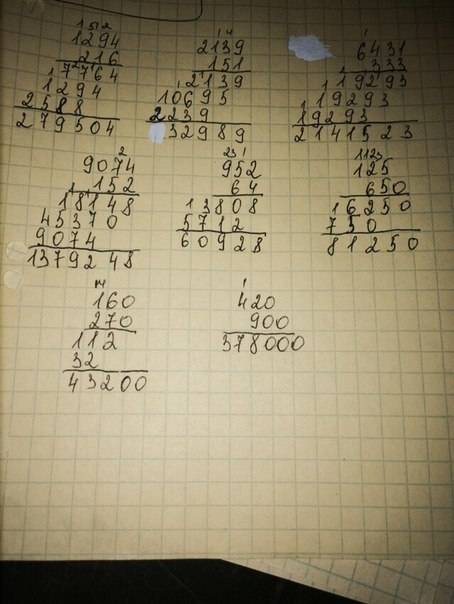 1 5 2
1294
216
7764
1294
2588
279504
1 4
2139
151
2139
10695
2239
32989
1
6431
333
19293
19293
19293
2141523
2
9074
152
18148
45370
9074
1379248
23 1
952
64
3808
5712
60928
1123
125
650
6250
750
81250
14
160
270
112
32
43200
1
420
900
378000